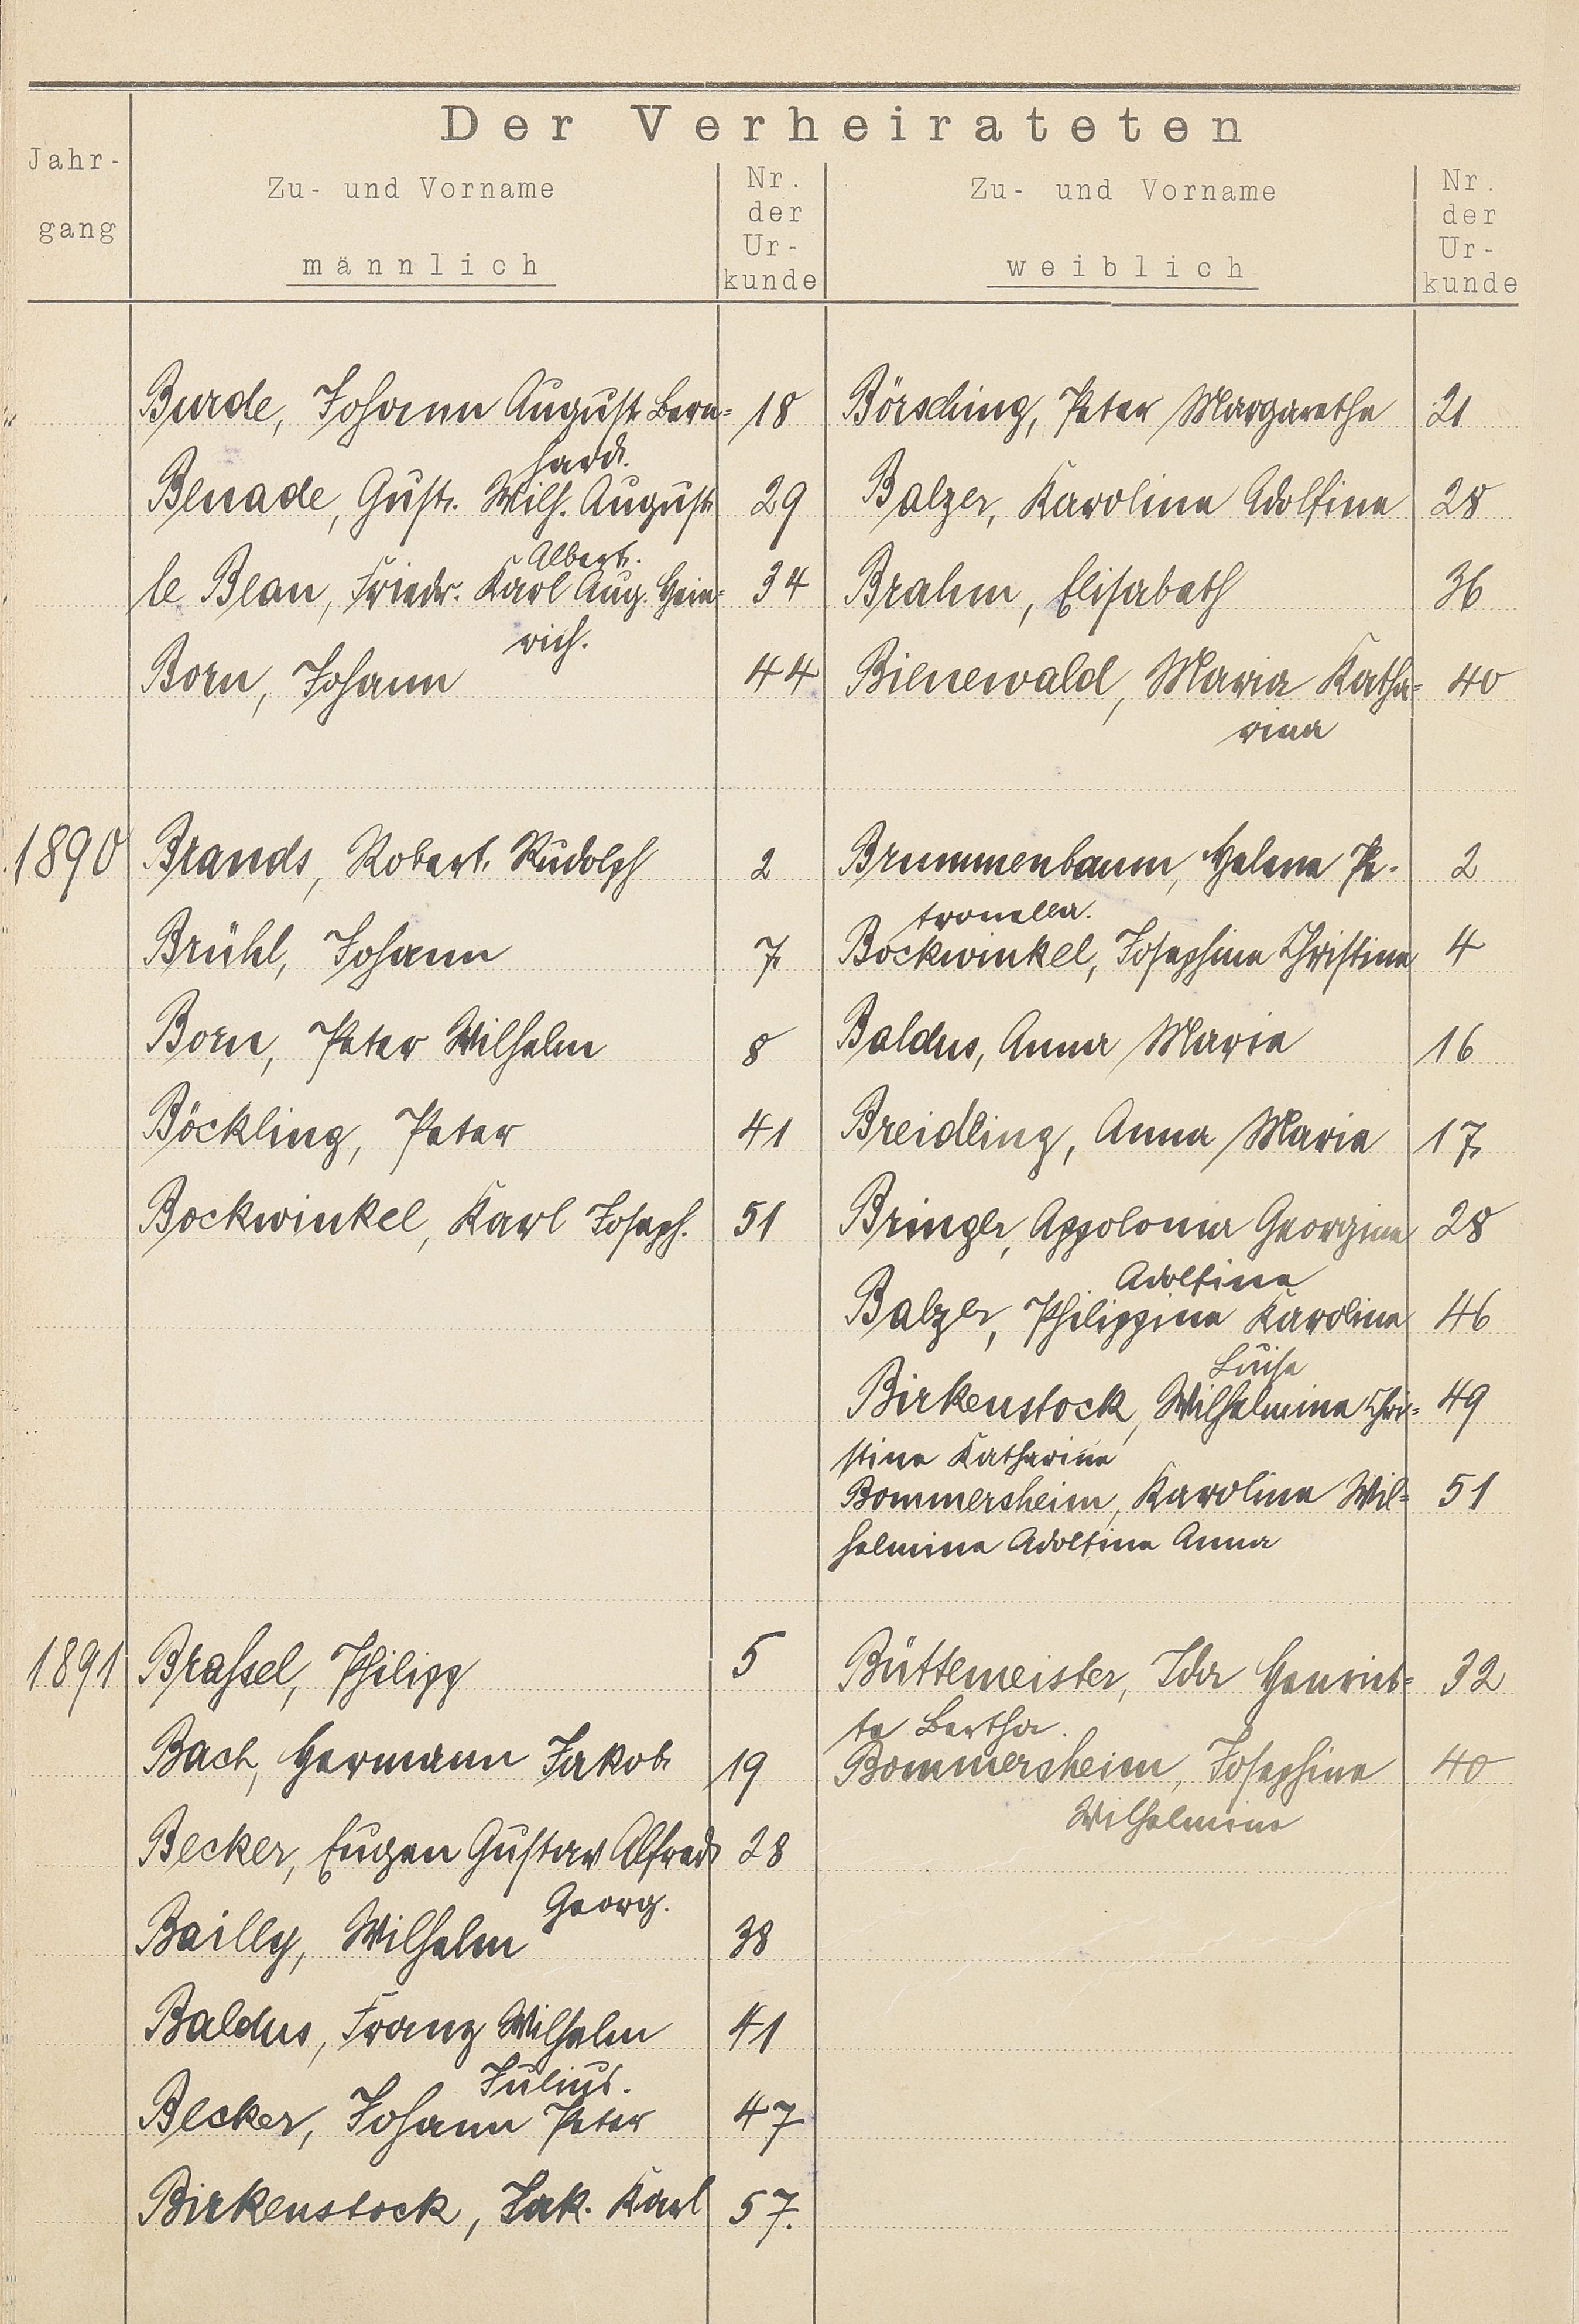 Der Verheirateten
Jahr-
gang
Zu- und Vorname
männlich
Nr.
der
Ur-
kunde
Zu- und Vorname
weiblich
Nr.
der
Ur-
kunde
Burde, Johann August Bern= 18 Börsching, Peter Margarethe 21
hard.
Benade, Gust. Wilh. August 29 Balzer, Karoline Adolfine 28
Albert.
le Beau, Friedr. Karl Aug. Hein= 34 Brahm, Elisabeth 36
rich.
Born, Johann 44 Bienewald, Maria Katha= 40
rina
1890 Brands, Robert Rudolph 2 Brummenbaum, Helene Pe- 2
tronella.
Brühl, Johann 7 Bockwinkel, Josephine Christine 4
Born, Peter Wilhelm 8 Baldus, Anna Maria 16
Böckling, Peter 41 Breidling, Anna Maria 17
Bockwinkel, Karl Joseph. 51 Bringer, Appolonia Georgine 28
Adolfine
Balzer, Philippine Karoline 46
Luise
Birkenstock, Wilhelmine Chri= 49
stine Katharine
Bommersheim, Karoline Wil= 51
helmine Adolfine Anna
1891 Braßel, Philipp 5 Büttemeister, Ida Henriet= 32
te Bertha.
Bach, Hermann Jakob 19 Bommersheim, Josephine 40
Wilhelmine
Becker, Eugen Gustav Alfred 28
Georg.
Bailly, Wilhelm 38
Baldus, Franz Wilhelm 41
Julius.
Becker, Johann Peter 47
Birkenstock, Jak. Karl 57.